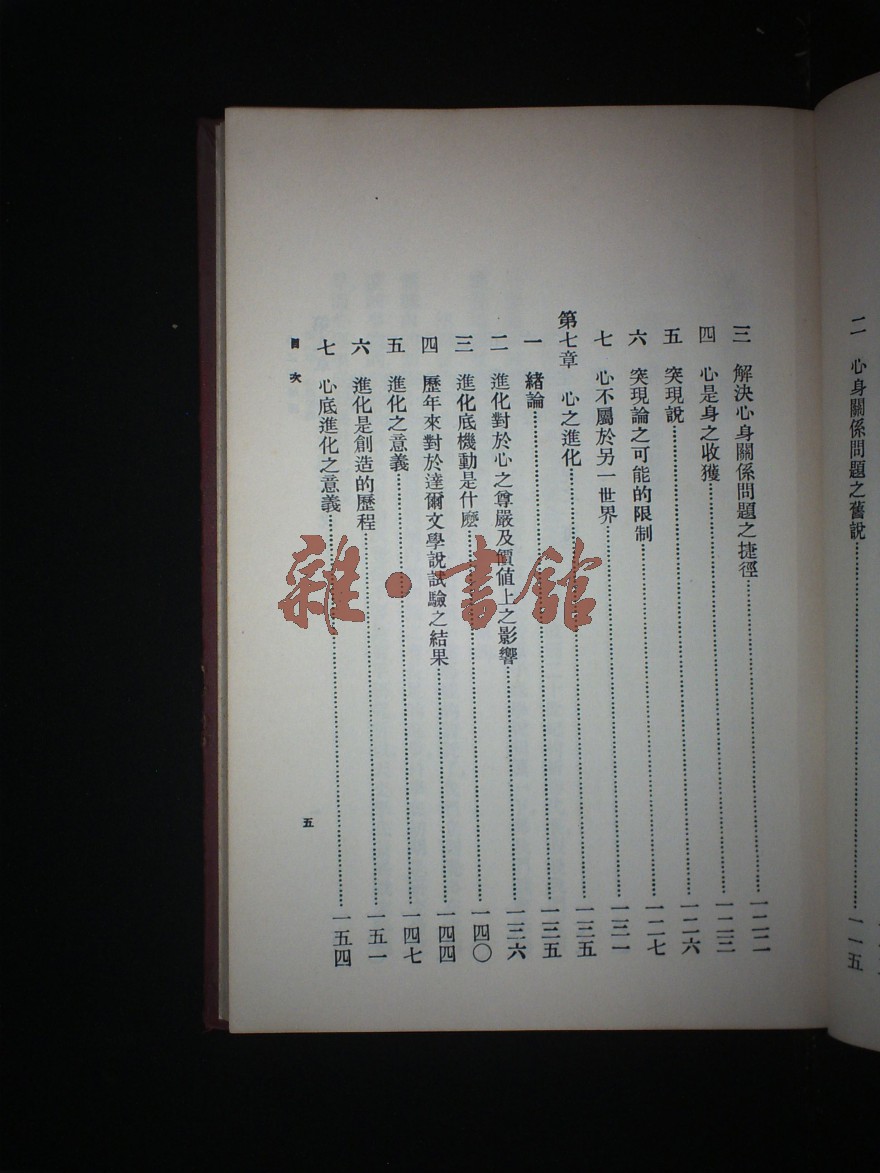 二 心身關係問題之舊說……一一五
三 解決心身關係問題之捷徑……一二二
四 心是身之收獲……一二三
五 突現說……一二六
六 突現論之可能的限制……一二七
七 心不屬於另一世界……一三一
第七章 心之進化……一三五
一 緒論……一三五
二 進化對於心之尊嚴及價値上之影響……一三六
三 進化底機動是什麽……一四〇
四 歷年來對於達爾文學說試驗之結果……一四四
五 進化之意義……一四七
六 進化是創造的歷程……一五一
七 心底進化之意義……一五四
目次
五
雜·書館